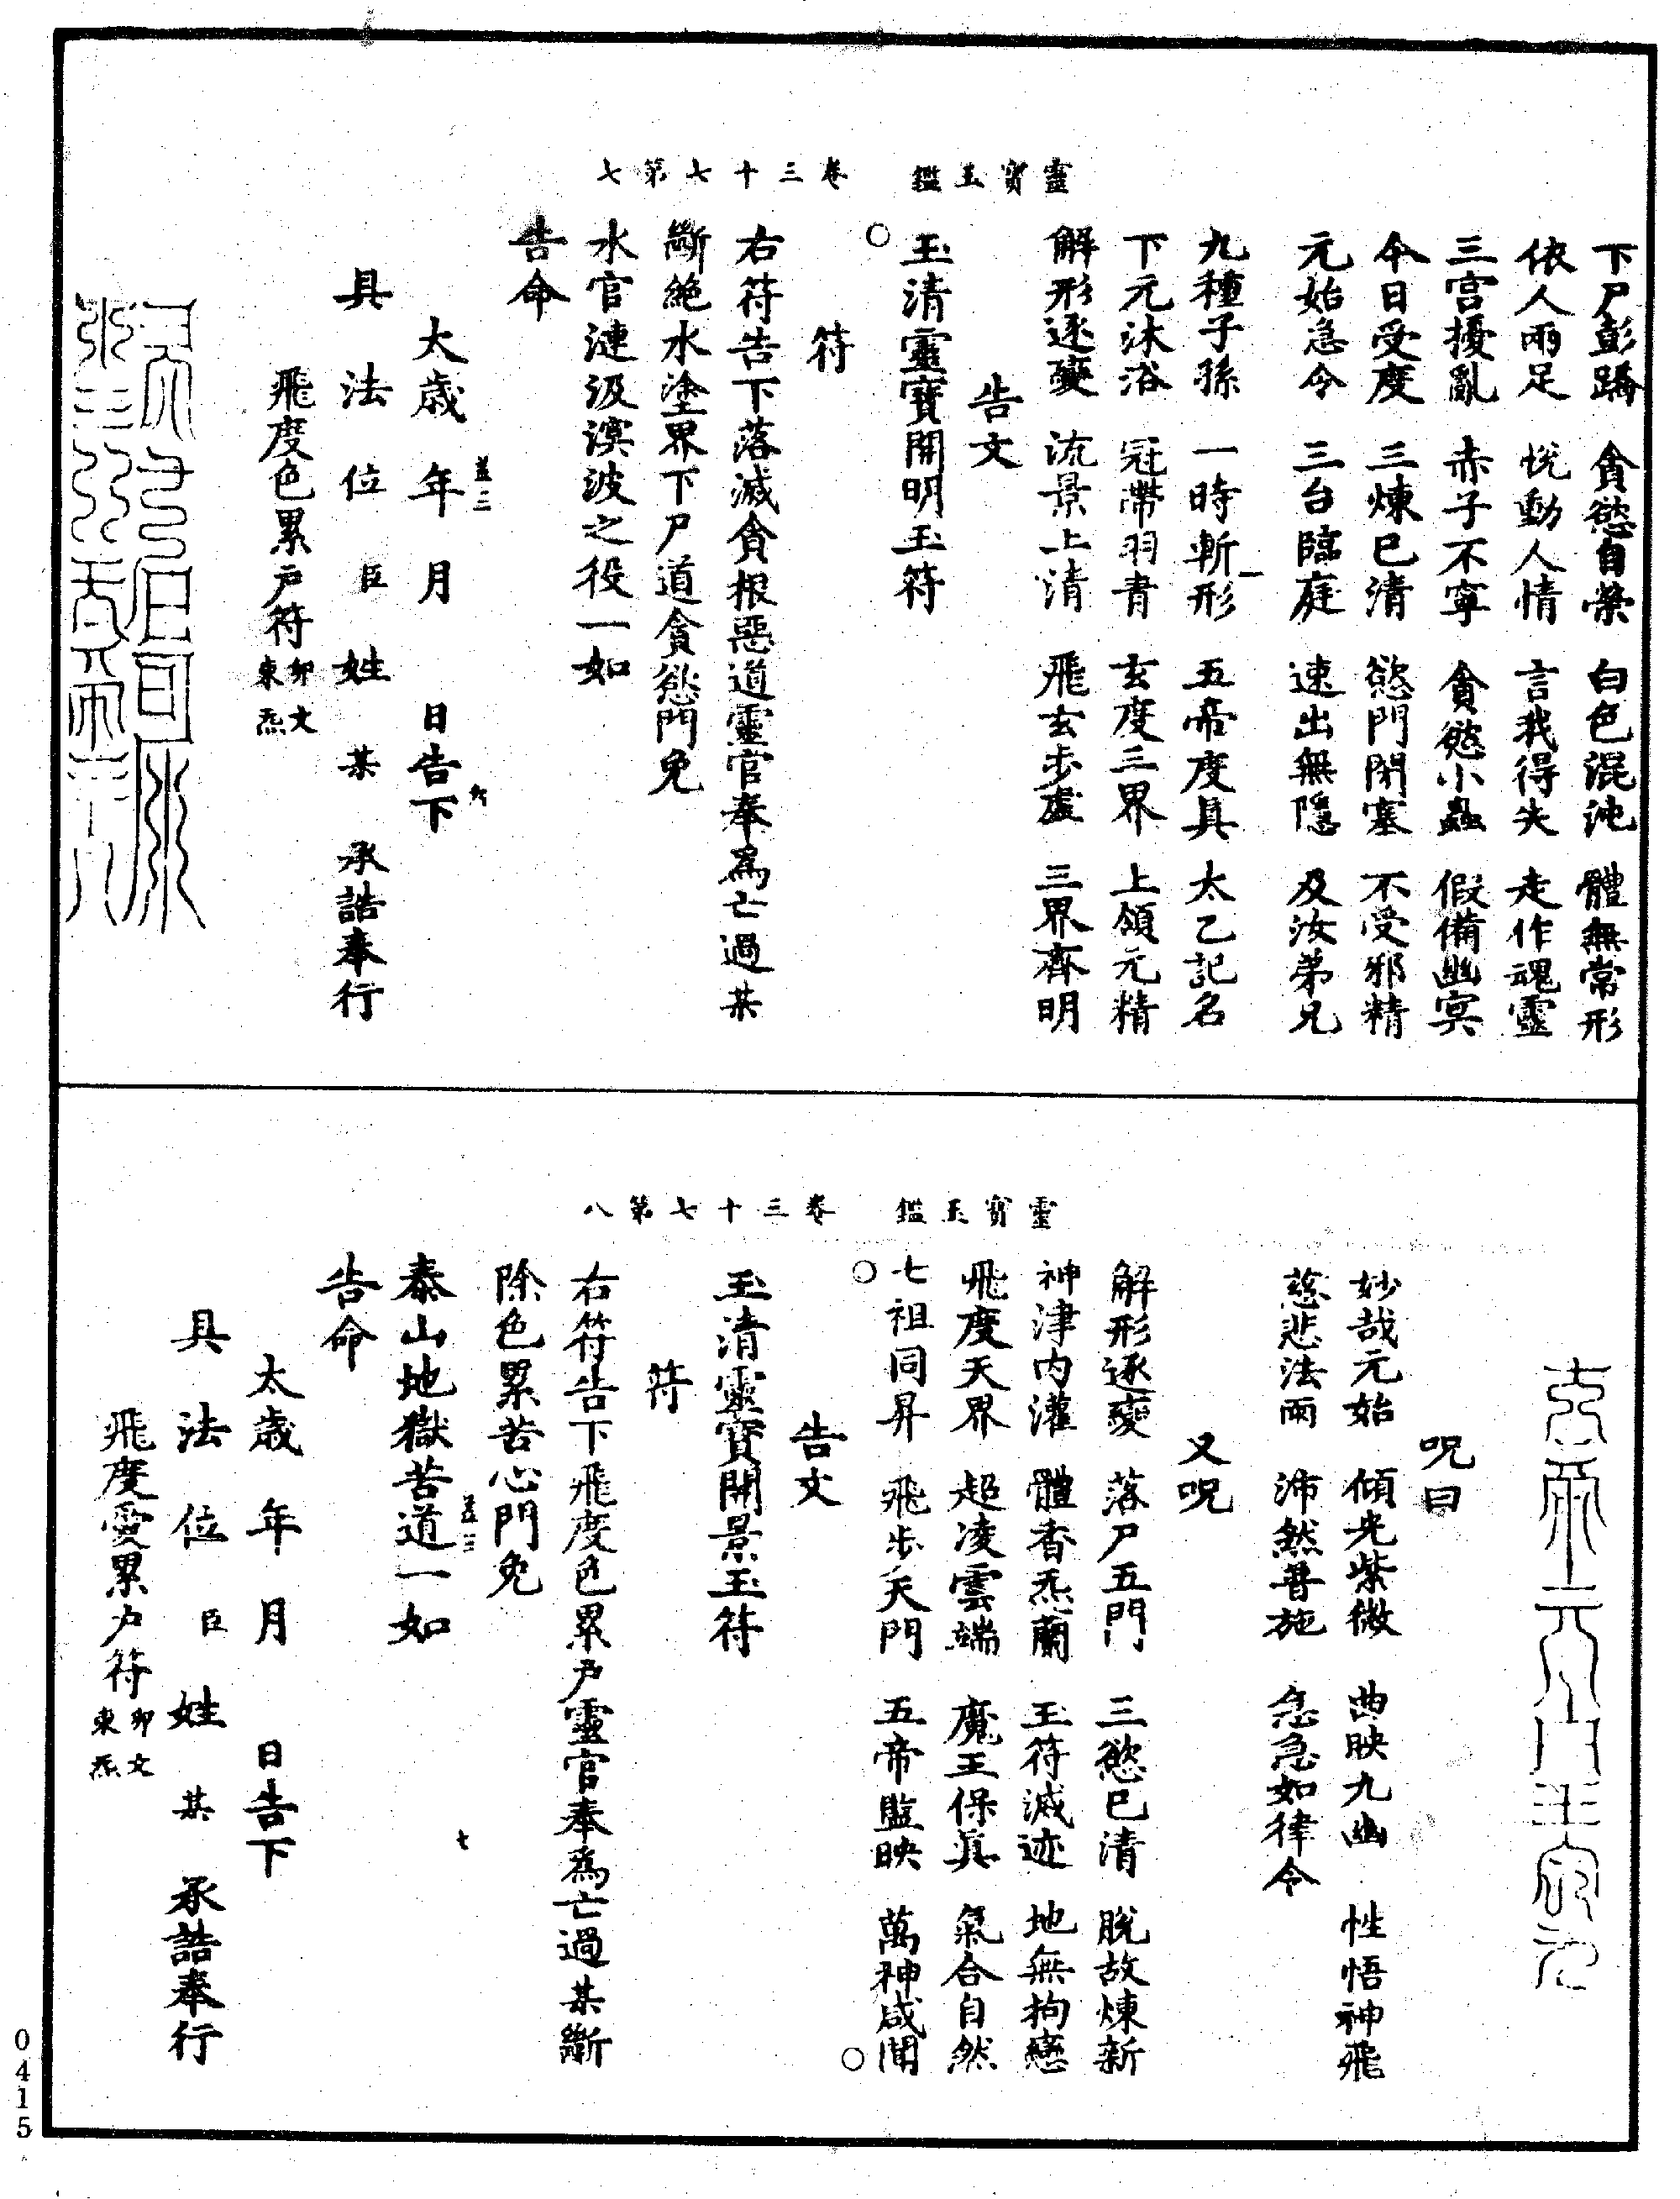 靈寶玉鑑　卷三十七第七
下尸彭蹻　貪慾自榮　白色混沌　體無常形
依人兩足　悅動人情　言我得失　走作魂靈
三宫擾亂　赤子不寧　貪慾小蟲　假備幽冥
今日受度　三煉已清　慾門閉塞　不受邪精
元始急令　三台臨庭　速出無隱　及汝弟兄
九種子孫　一時斬形　五帝度具　太乙記名
下元沐浴　冠帶羽青　玄度三界　上領元精
解形逐變　流景上清　飛玄步虛　三界齊明
告文
玉清靈寶開明玉符
○
符
右符告下落滅貪根惡道靈官奉爲亡過某
斷絶水塗界下尸道貪慾門免
水官漣汲溟波之役一如
告命
太歲　年　月　日告下
具　法　位　臣　姓　某　承誥奉行
飛度色累户符　卯文　東炁
靈寶玉鑑　卷三十七第八
呪曰
妙哉元始　傾光紫微　曲映九幽　性悟神飛
慈悲法雨　沛然普施　急急如律令
又呪
解形逐變　落尸五門　三慾已清　脫故煉新
神津内灌　體香炁蘭　玉符滅迹　地無拘戀
飛度天界　超凌雲端　魔王保真　氣合自然
七祖同昇　飛步天門　五帝監映　萬神咸聞
○　○
告文
玉清靈寶開景玉符
符
右符告下飛度色累户靈官奉爲亡過某斷
除色累苦心門免
泰山地獄苦道一如
告命
太歲　年　月　日告下
具　法　位　臣　姓　某　承誥奉行
飛度愛累户符　卯文　東炁
0415